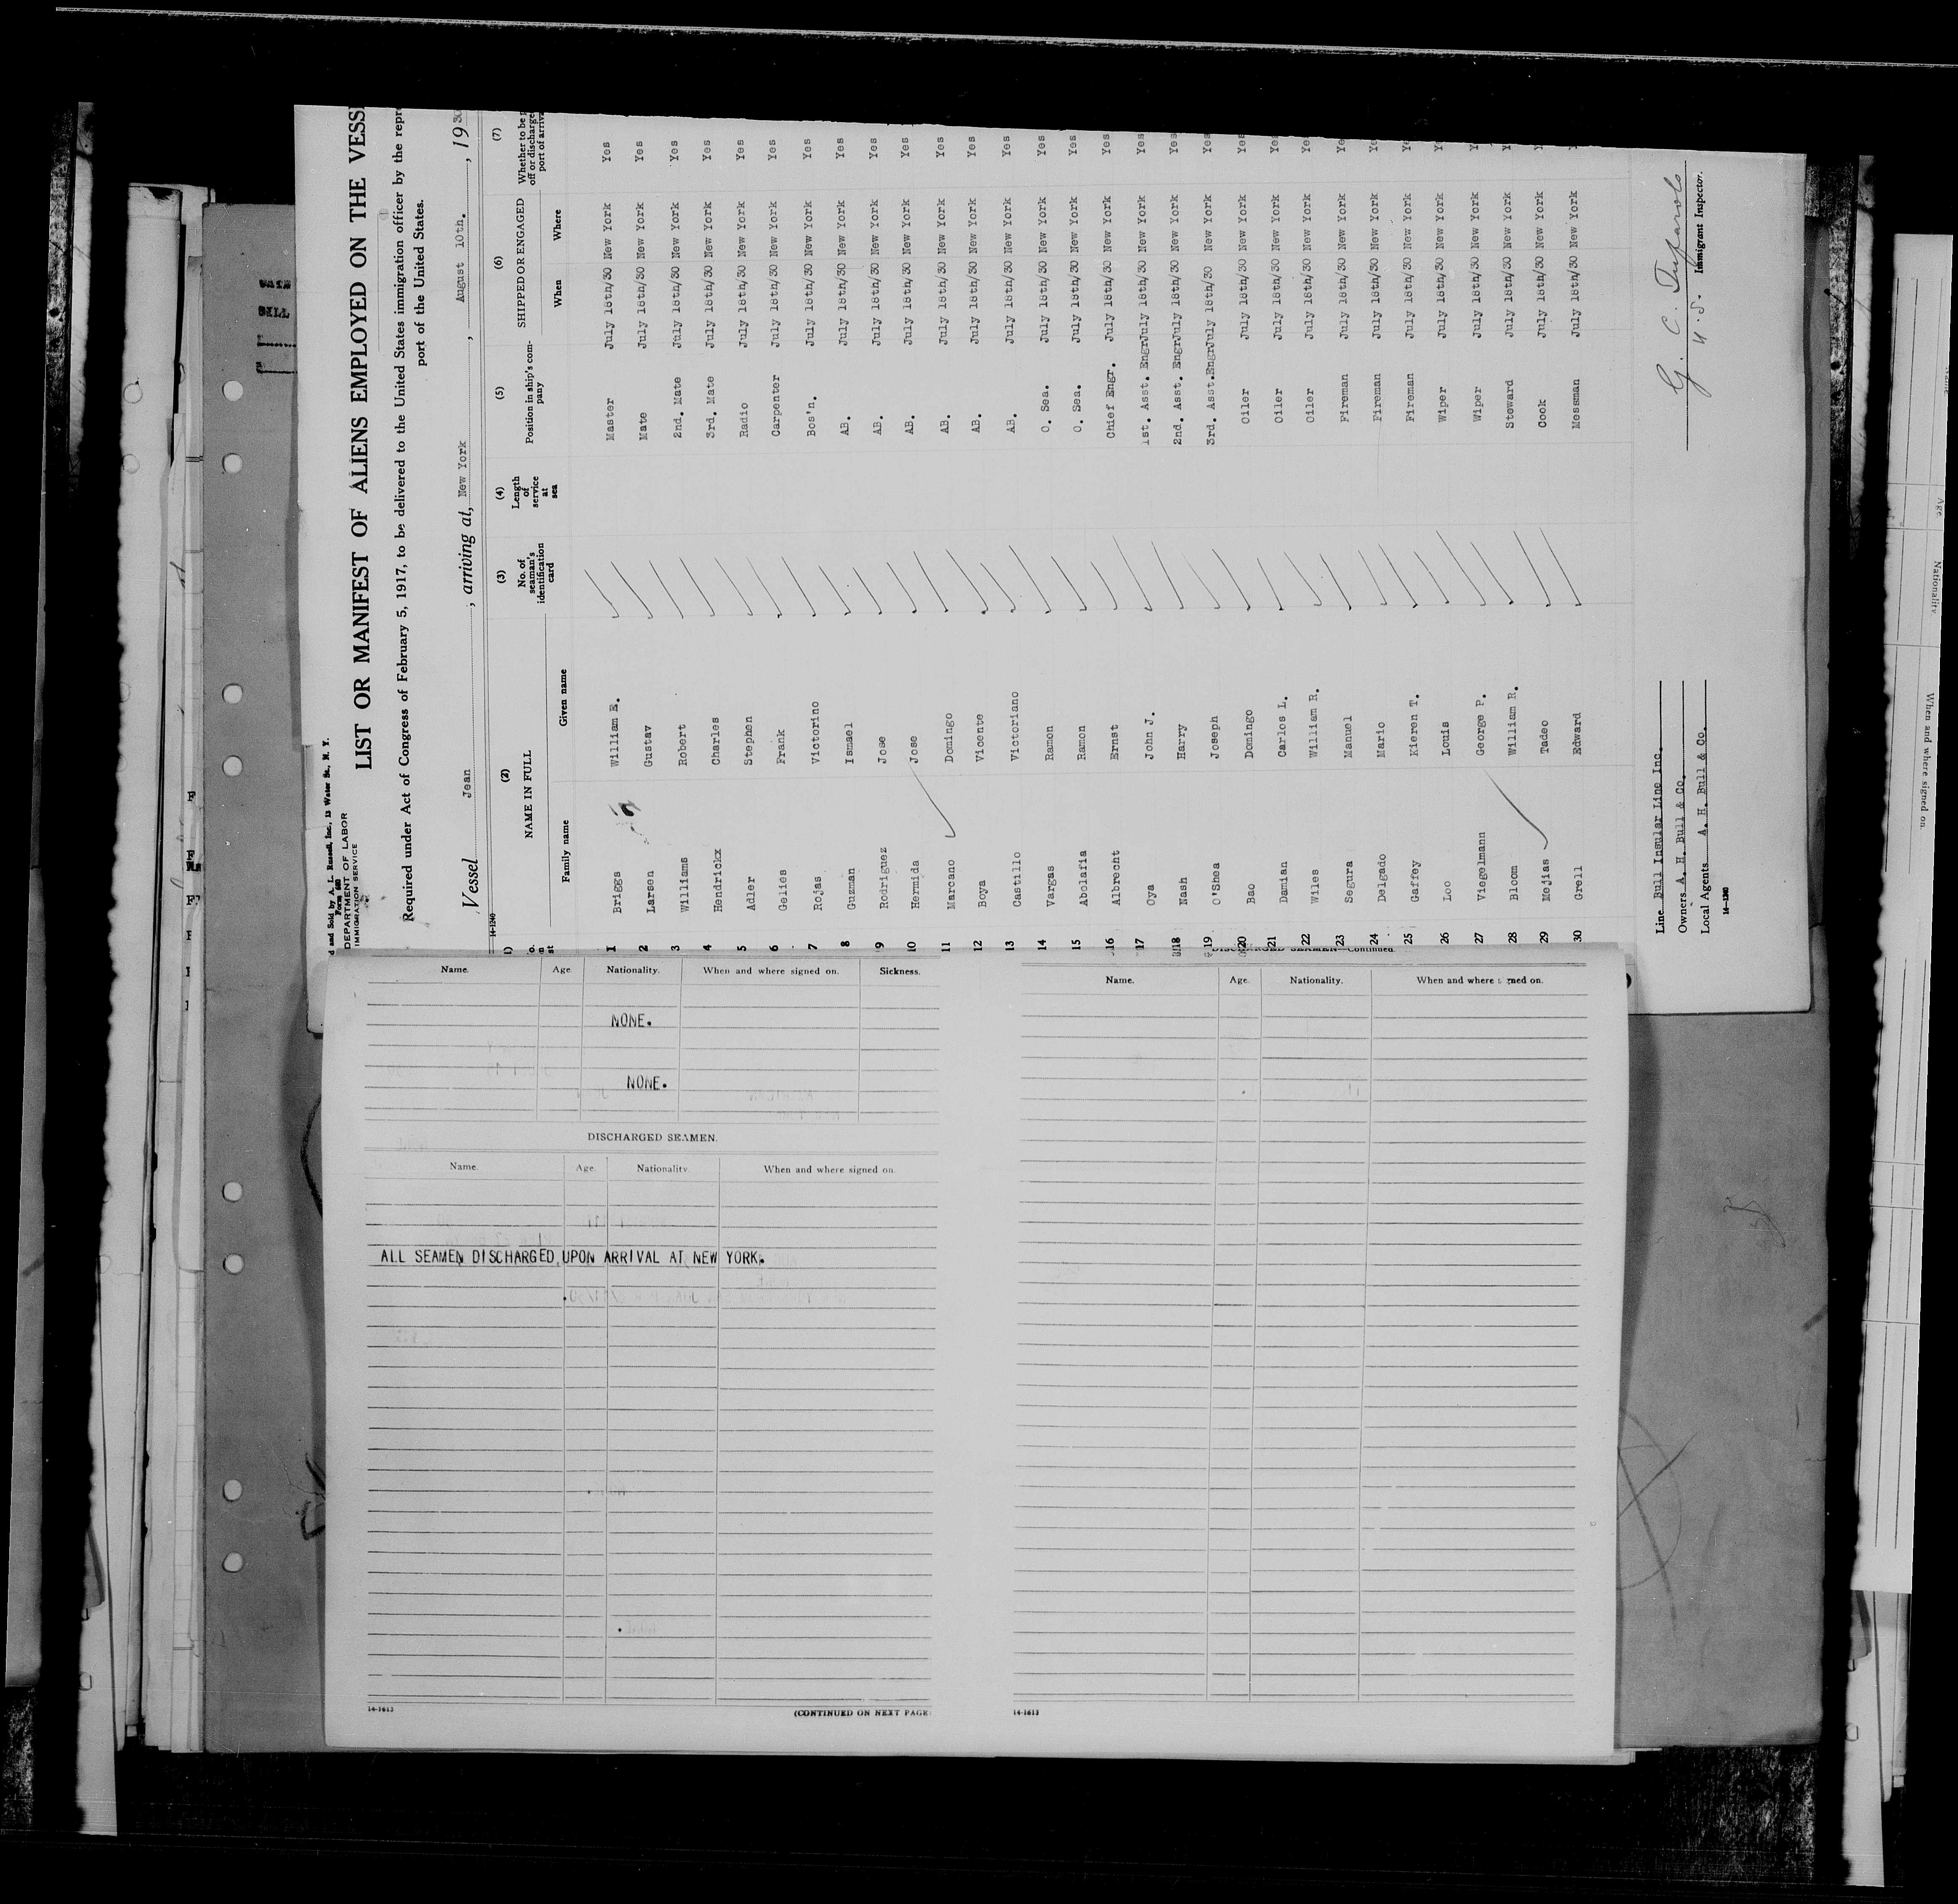 and Sold by A. L. Russell, Inc., 13 Water St., N. Y.
Form 680
DEPARTMENT OF LABOR
IMMIGRATION SERVICE
LIST OR MANIFEST OF ALIENS EMPLOYED ON THE VESS
Required under Act of Congress of February 5, 1917, to be delivered to the United States immigration officer by the repr
port of the United States.
Vessel Jean, arriving at, New York, August 10th., 1930
14-1240
(2) (3) (4) (5) (6) (7)
NAME IN FULL No. of seaman's identification card Length of service at sea Position in ship's company SHIPPED OR ENGAGED Whether to be off or discharge port of arriva
Family name Given name When Where
1 Briggs William E. Master July 18th/30 New York Yes
2 Larsen Gustav Mate July 18th/30 New York Yes
3 Williams Robert 2nd. Mate July 18th/30 New York Yes
4 Hendrickx Charles 3rd. Mate July 18th/30 New York Yes
5 Adler Stephen Radio July 18th/30 New York Yes
6 Gelios Frank Carpenter July 18th/30 New York Yes
7 Rojas Victorino Bos'n. July 18th/30 New York Yes
8 Guzman Ismael AB. July 18th/30 New York Yes
9 Rodriguez Jose AB. July 18th/30 New York Yes
10 Hermida Jose AB. July 18th/30 New York Yes
11 Marcano Domingo AB. July 18th/30 New York Yes
12 Boya Vicente AB. July 18th/30 New York Yes
13 Castillo Victoriano AB. July 18th/30 New York Yes
14 Vargas Ramon O. Sea. July 18th/30 New York Yes
15 Abolafia Ramon O. Sea. July 18th/30 New York Yes
16 Albrecht Ernst Chief Engr. July 18th/30 New York Yes
17 Oya John J. 1st. Asst. Engr July 18th/30 New York Yes
18 Nash Harry 2nd. Asst. Engr July 18th/30 New York Yes
19 O'Shea Joseph 3rd. Asst.Engr July 18th/30 New York Yes
20 Bao Domingo Oiler July 18th/30 New York Yes
21 Damian Carlos L. Oiler July 18th/30 New York Yes
22 Wiles William R. Oiler July 18th/30 New York Ye
23 Segura Manuel Fireman July 18th/30 New York Ye
24 Delgado Mario Fireman July 18th/30 New York Ye
25 Gaffey Kieren T. Fireman July 18th/30 New York Ye
26 Loo Louis Wiper July 18th/30 New York Y
27 Viegelmann George P. Wiper July 18th/30 New York Y
28 Bloom William R. Steward July 18th/30 New York Y
29 Mejias Tadeo Cook July 18th/30 New York
30 Grell Edward Messman July 18th/30 New York
Line Bull Insular Line Inc.
Owners A. H. Bull & Co.
Local Agents A. H. Bull & Co.
14-1240
G. C.
U.S. Immigrant Inspector.
Name. Age. Nationality. When and where signed on. Sickness.
NONE.
NONE.
DISCHARGED SEAMEN.
Name. Age. Nationality. When and where signed on.
ALL SEAMEN DISCHARGED UPON ARRIVAL AT NEW YORK.
14-1613
(CONTINUED ON NEXT PAGE
DISCHARGED SEAMEN—Continued.
Name. Age. Nationality. When and where signed on.
14-1613
Age.
Nationality
When and where signed on.